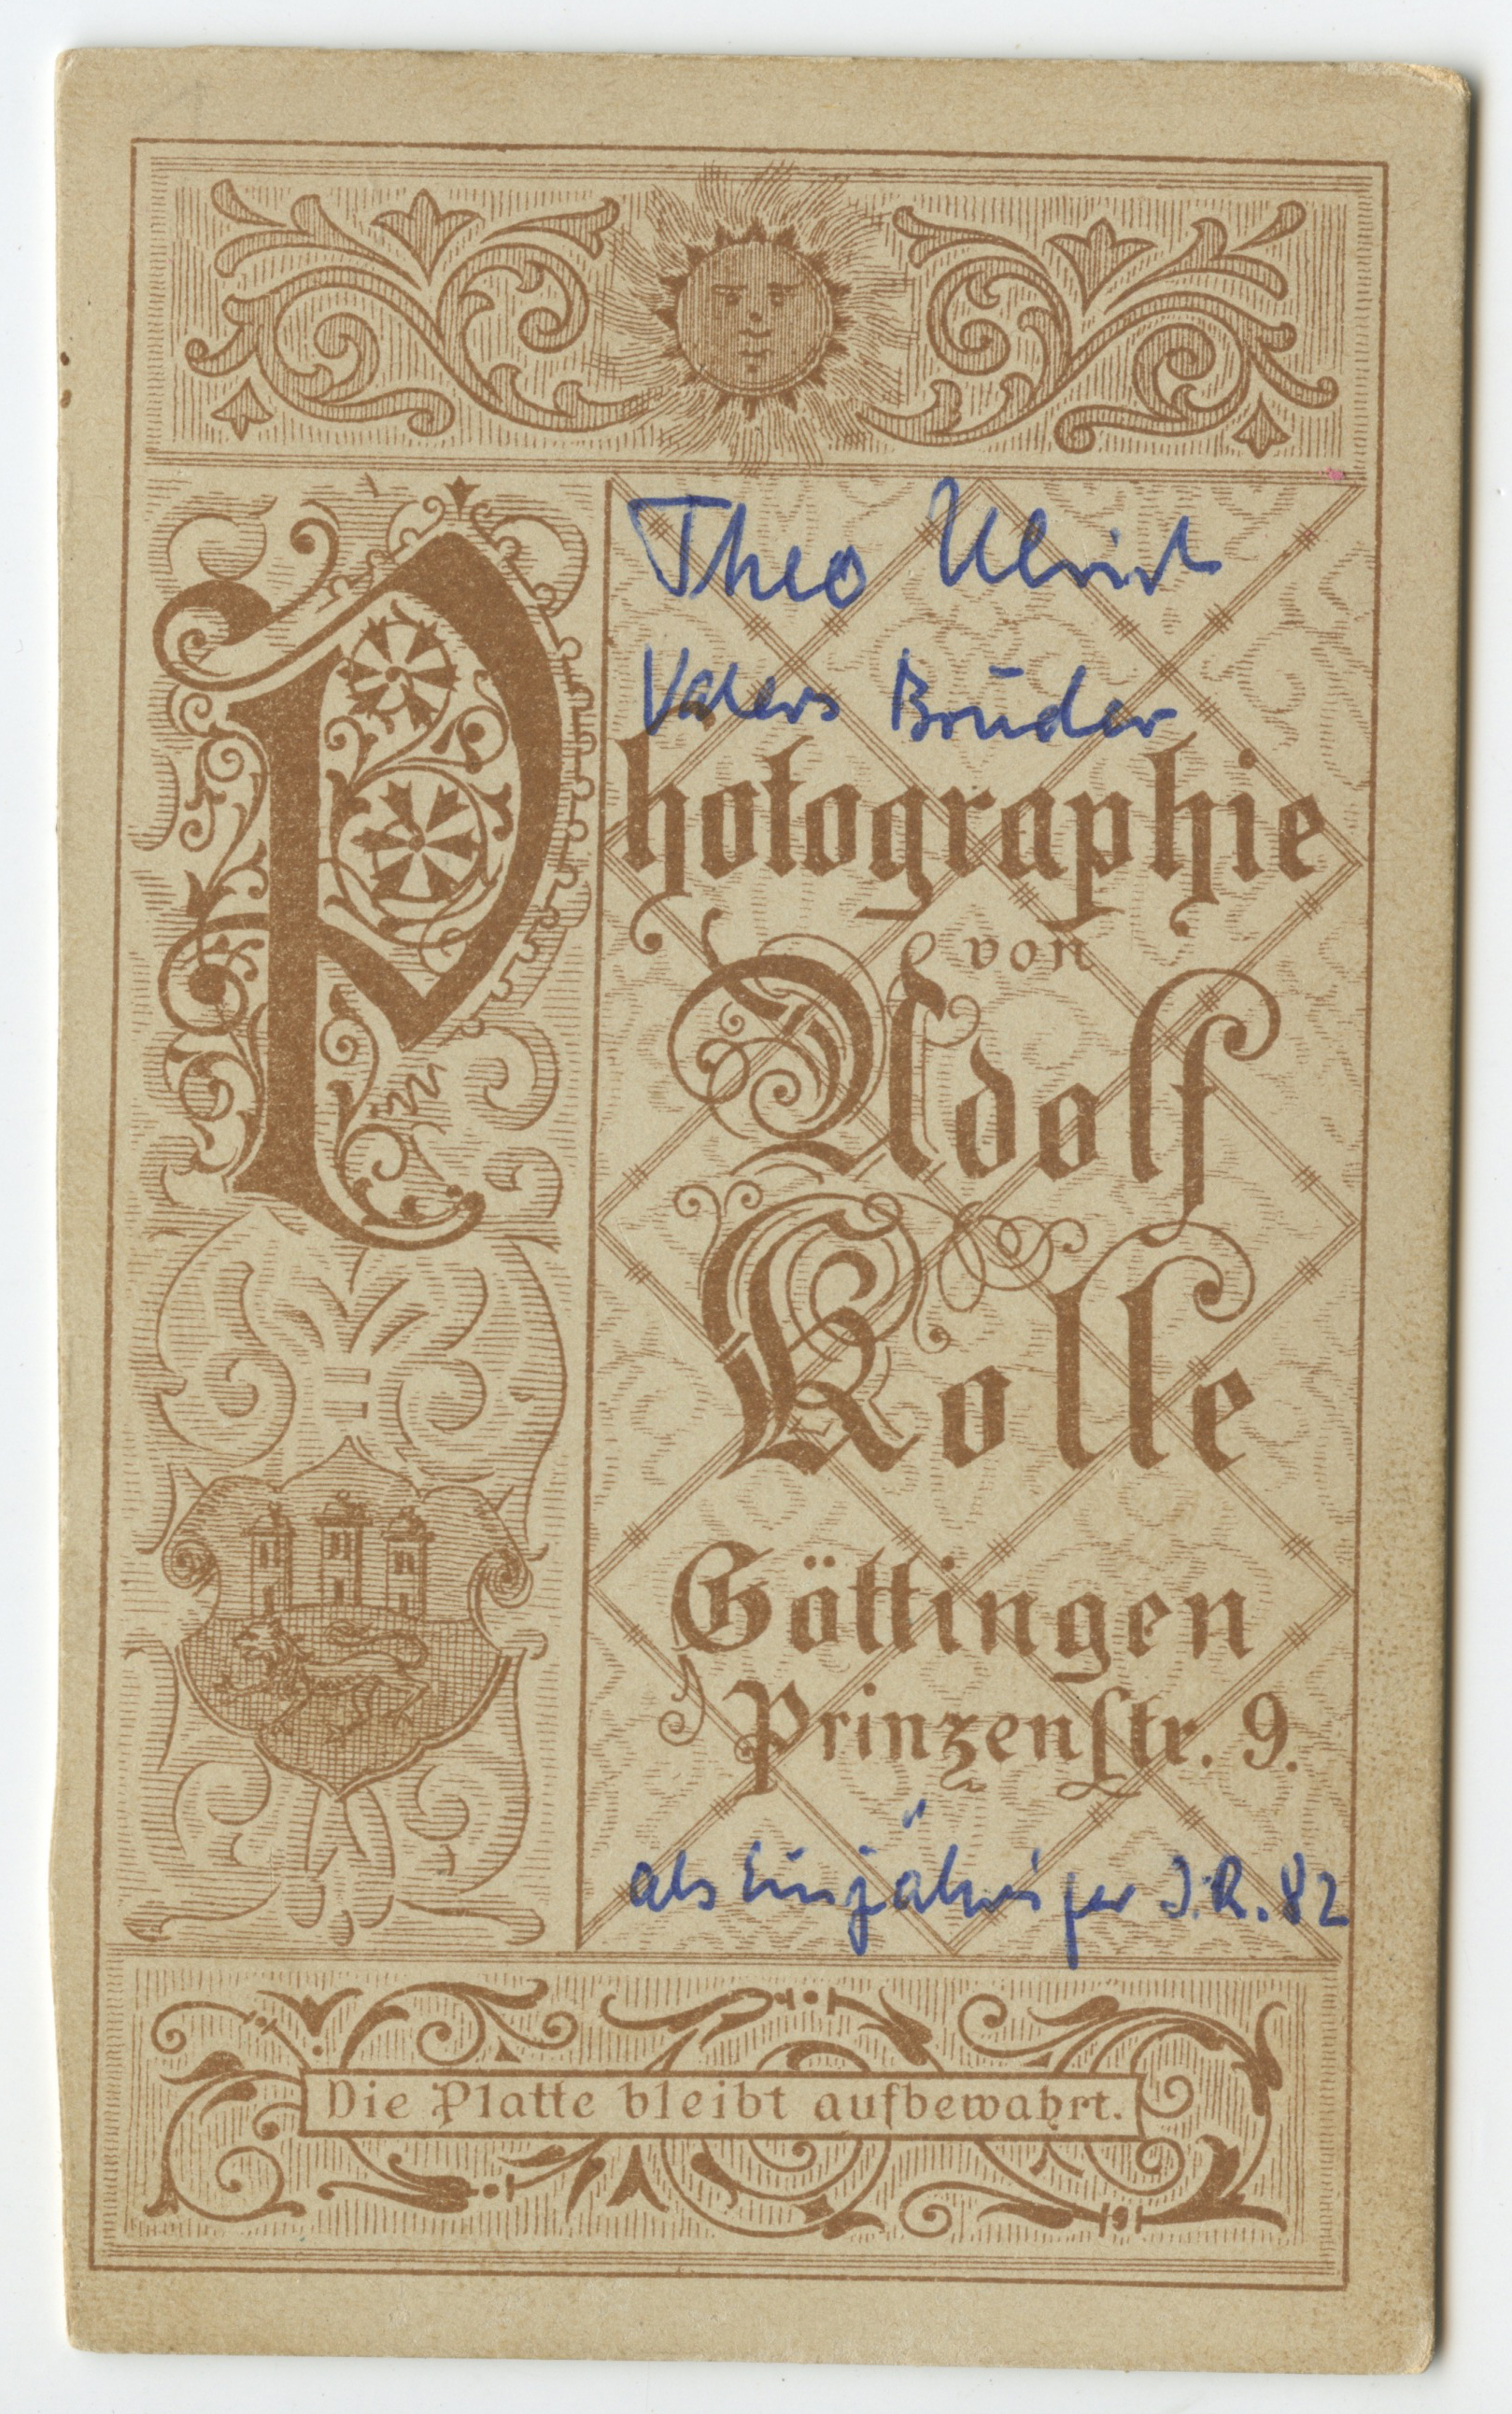 Theo Ulrich
Vaters Brūder
Photographie
von
Adolf
Kolle
Göttingen
Prinzenſtr. 9.
als Einjähriger J.R. 82
Die Platte bleibt aufbewahrt.